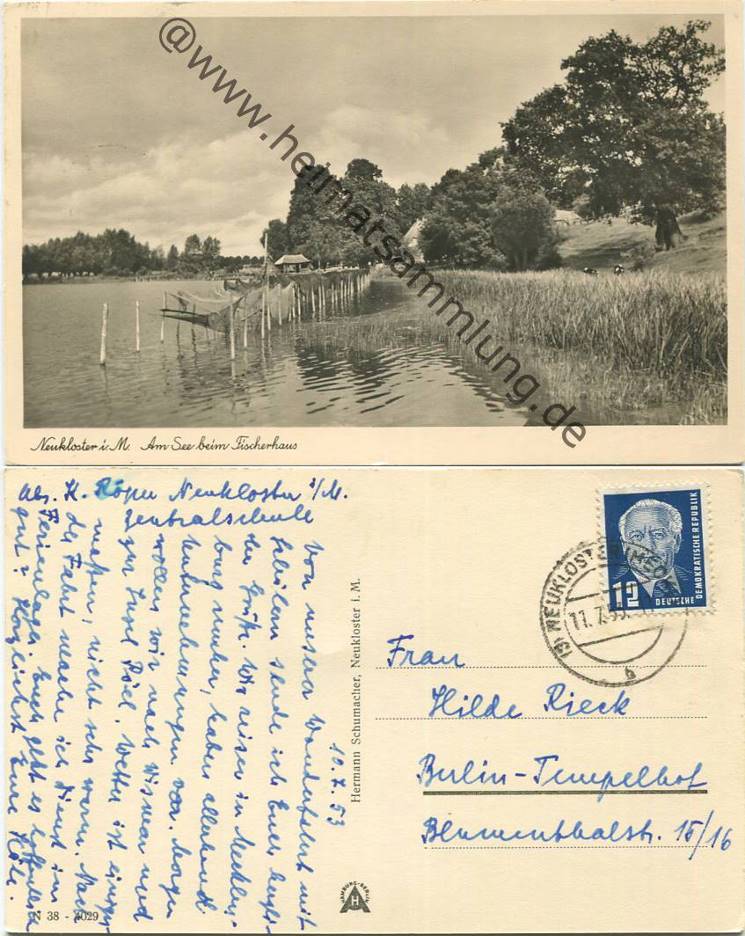 @www.heimatsammlung.de
Neukloster i. M. Am See beim Fischerhaus
Abs. H. Röper Neukloster i/M.
Zentralschule
10.7.53
Von unserer Wanderfahrt mit
Schülern sende ich Euch herzli-
che Grüße. Wir reisen in Mecklen-
burg umher, haben allerhand
Unternehmungen vor. Morgen
wollen wir nach Wismar und
zur Insel Pöel. Wetter ist einiger-
maßen, nicht sehr warm. Nach
der Fahrt mache ich Dienst im
Ferienlager. Euch geht es hoffentlich
gut? Herzlichst Eure
Hermann Schumacher, Neukloster i. M.
N 38 - 4029
HAMBURG-BERLIN
12
DEUTSCHE
DEMOKRATISCHE REPUBLIK
(3) NEUKLOSTER (MECKL)
11.7.53
b
Frau
Hilde Rieck
Berlin-Tempelhof
Blumenthalstr. 15/16